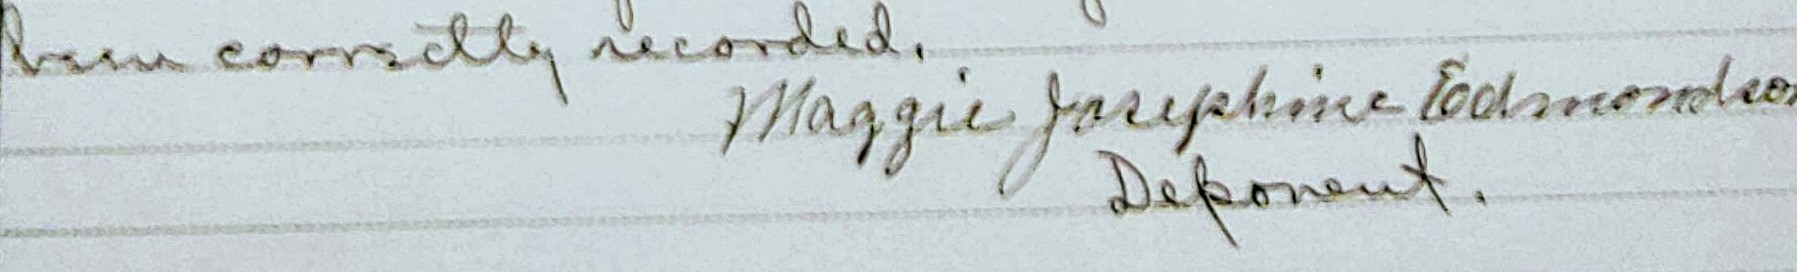 been correctly recorded.
Maggie Josephine Edmondson
Deponent.